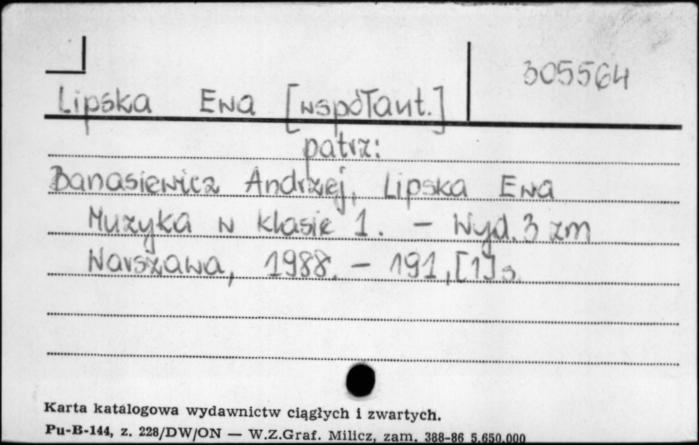 305564
Lipska Ewa [współaut.]
patrz:
Banasiewicz Andrzej, Lipska Ewa
Muzyka w klasie 1. - Wyd. 3 zm
Warszawa, 1988. - 191, [1] s.
Karta katalogowa wydawnictw ciągłych i zwartych.
Pu-B-144, z. 228/DW/ON — W.Z.Graf. Milicz, zam. 388-86 5.650.000